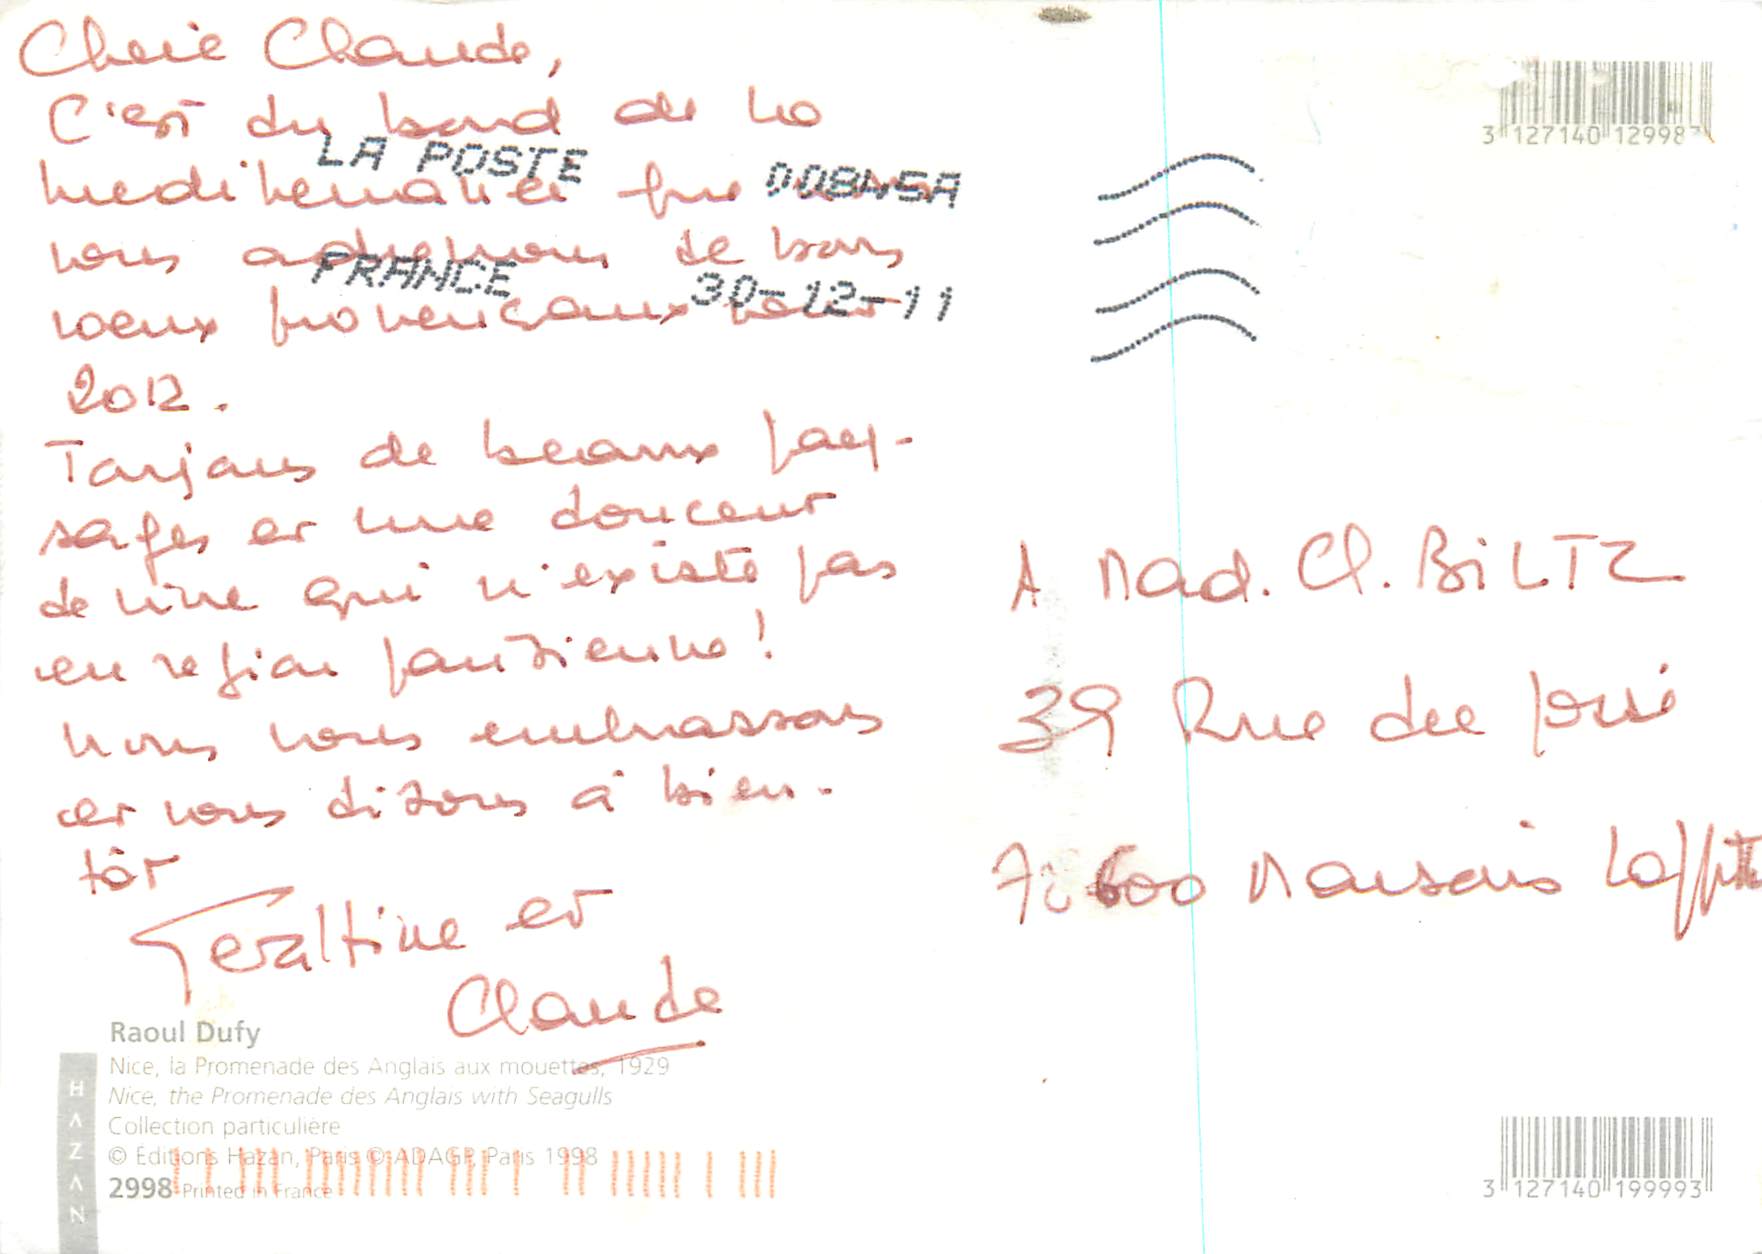 Cherie Claude,
C'est du bord de la
mediterranée que nous
vous adressons de bons
voeux provençaux pour
2012.
Toujours de beaux pay-
sages et une douceur
de vivre qui n'existe pas
en region parisienne!
Nous vous embrassons
et vous disons à bien-
tôt
Geraltine et
Claude
LA POSTE
00845A
FRANCE
30-12-11
3 127140 12998
A Mad. Cl. BiLTZ
39 Rue du
78600 Maisons Laffitte
Raoul Dufy
Nice, la Promenade des Anglais aux mouettes, 1929
Nice, the Promenade des Anglais with Seagulls
Collection particulière
© Editions Hazan, Paris © ADAGP, Paris 1998
2998 Printed in France
HAZAN
3 127140 199993